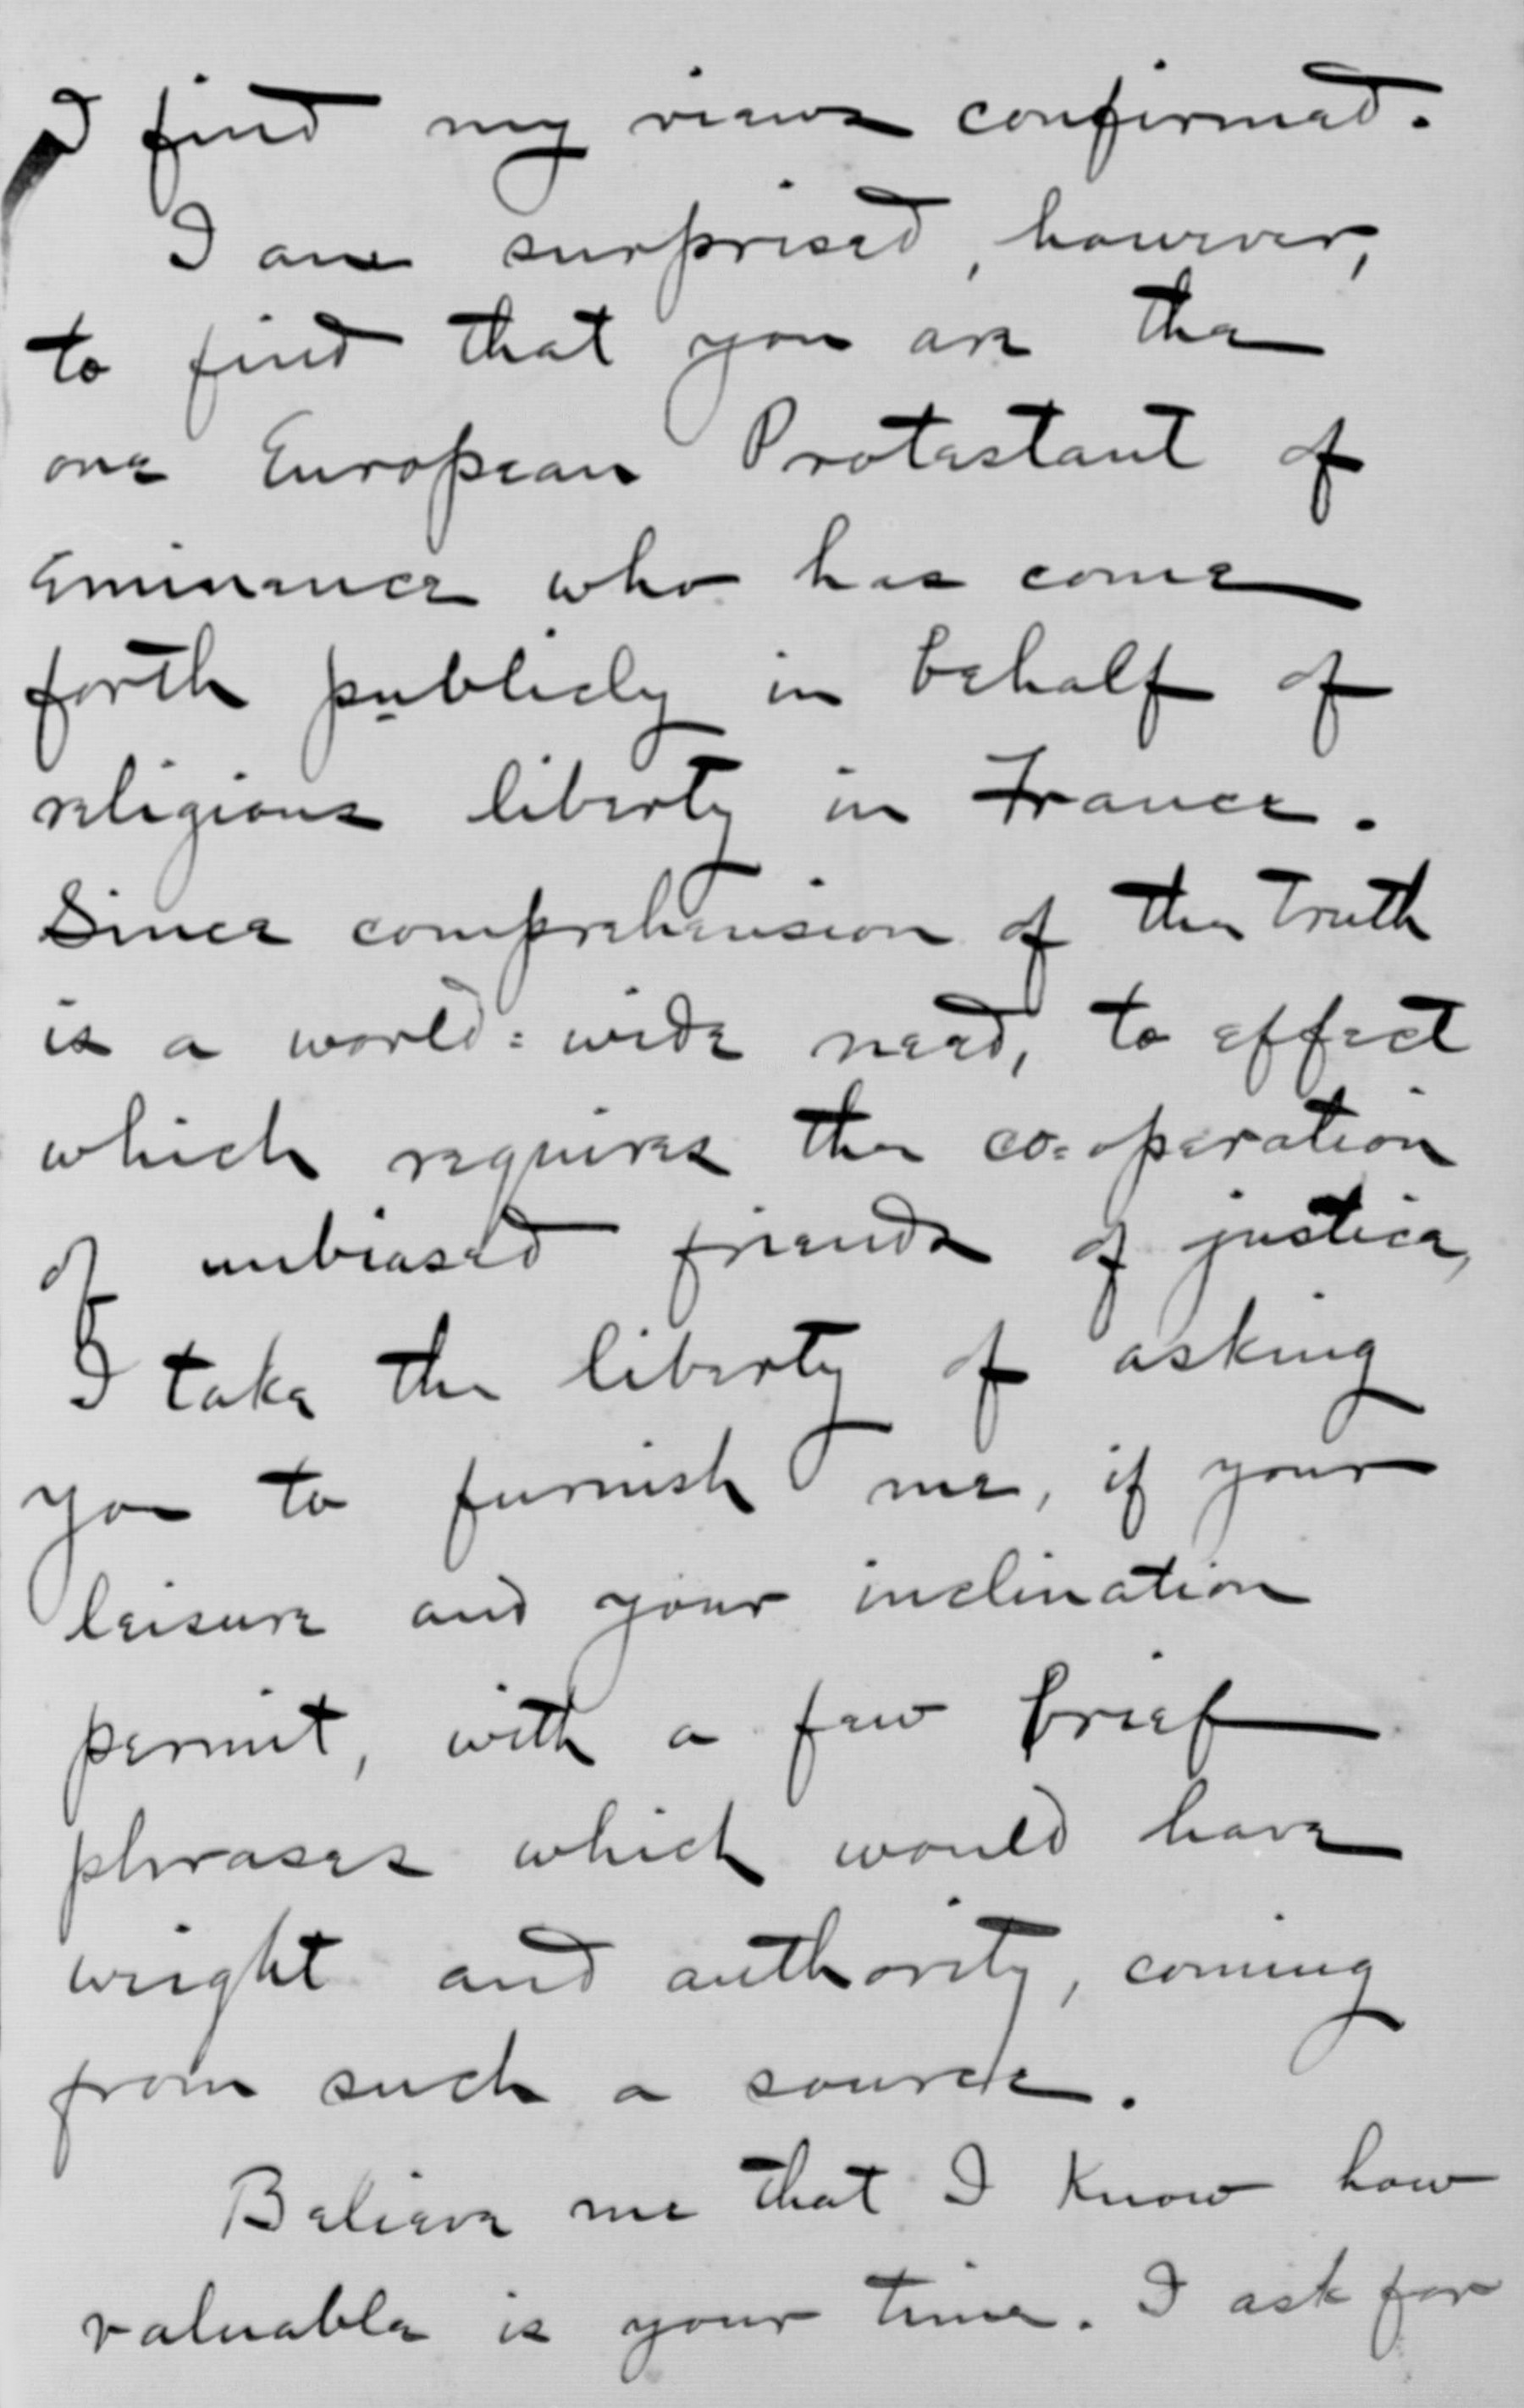 I find my views confirmed.
I am surprised, however,
to find that you are the
one European Protestant of
eminence who has come
forth publicly in behalf of
religious liberty in France.
Since comprehension of the truth
is a world=wide need, to effect
which requires the co=operation
of unbiased friends of justice,
I take the liberty of asking
you to furnish me, if your
leisure and your inclination
permit, with a few brief
phrases which would have
weight and authority, coming
from such a source.
Believe me that I know how
valuable is your time. I ask for